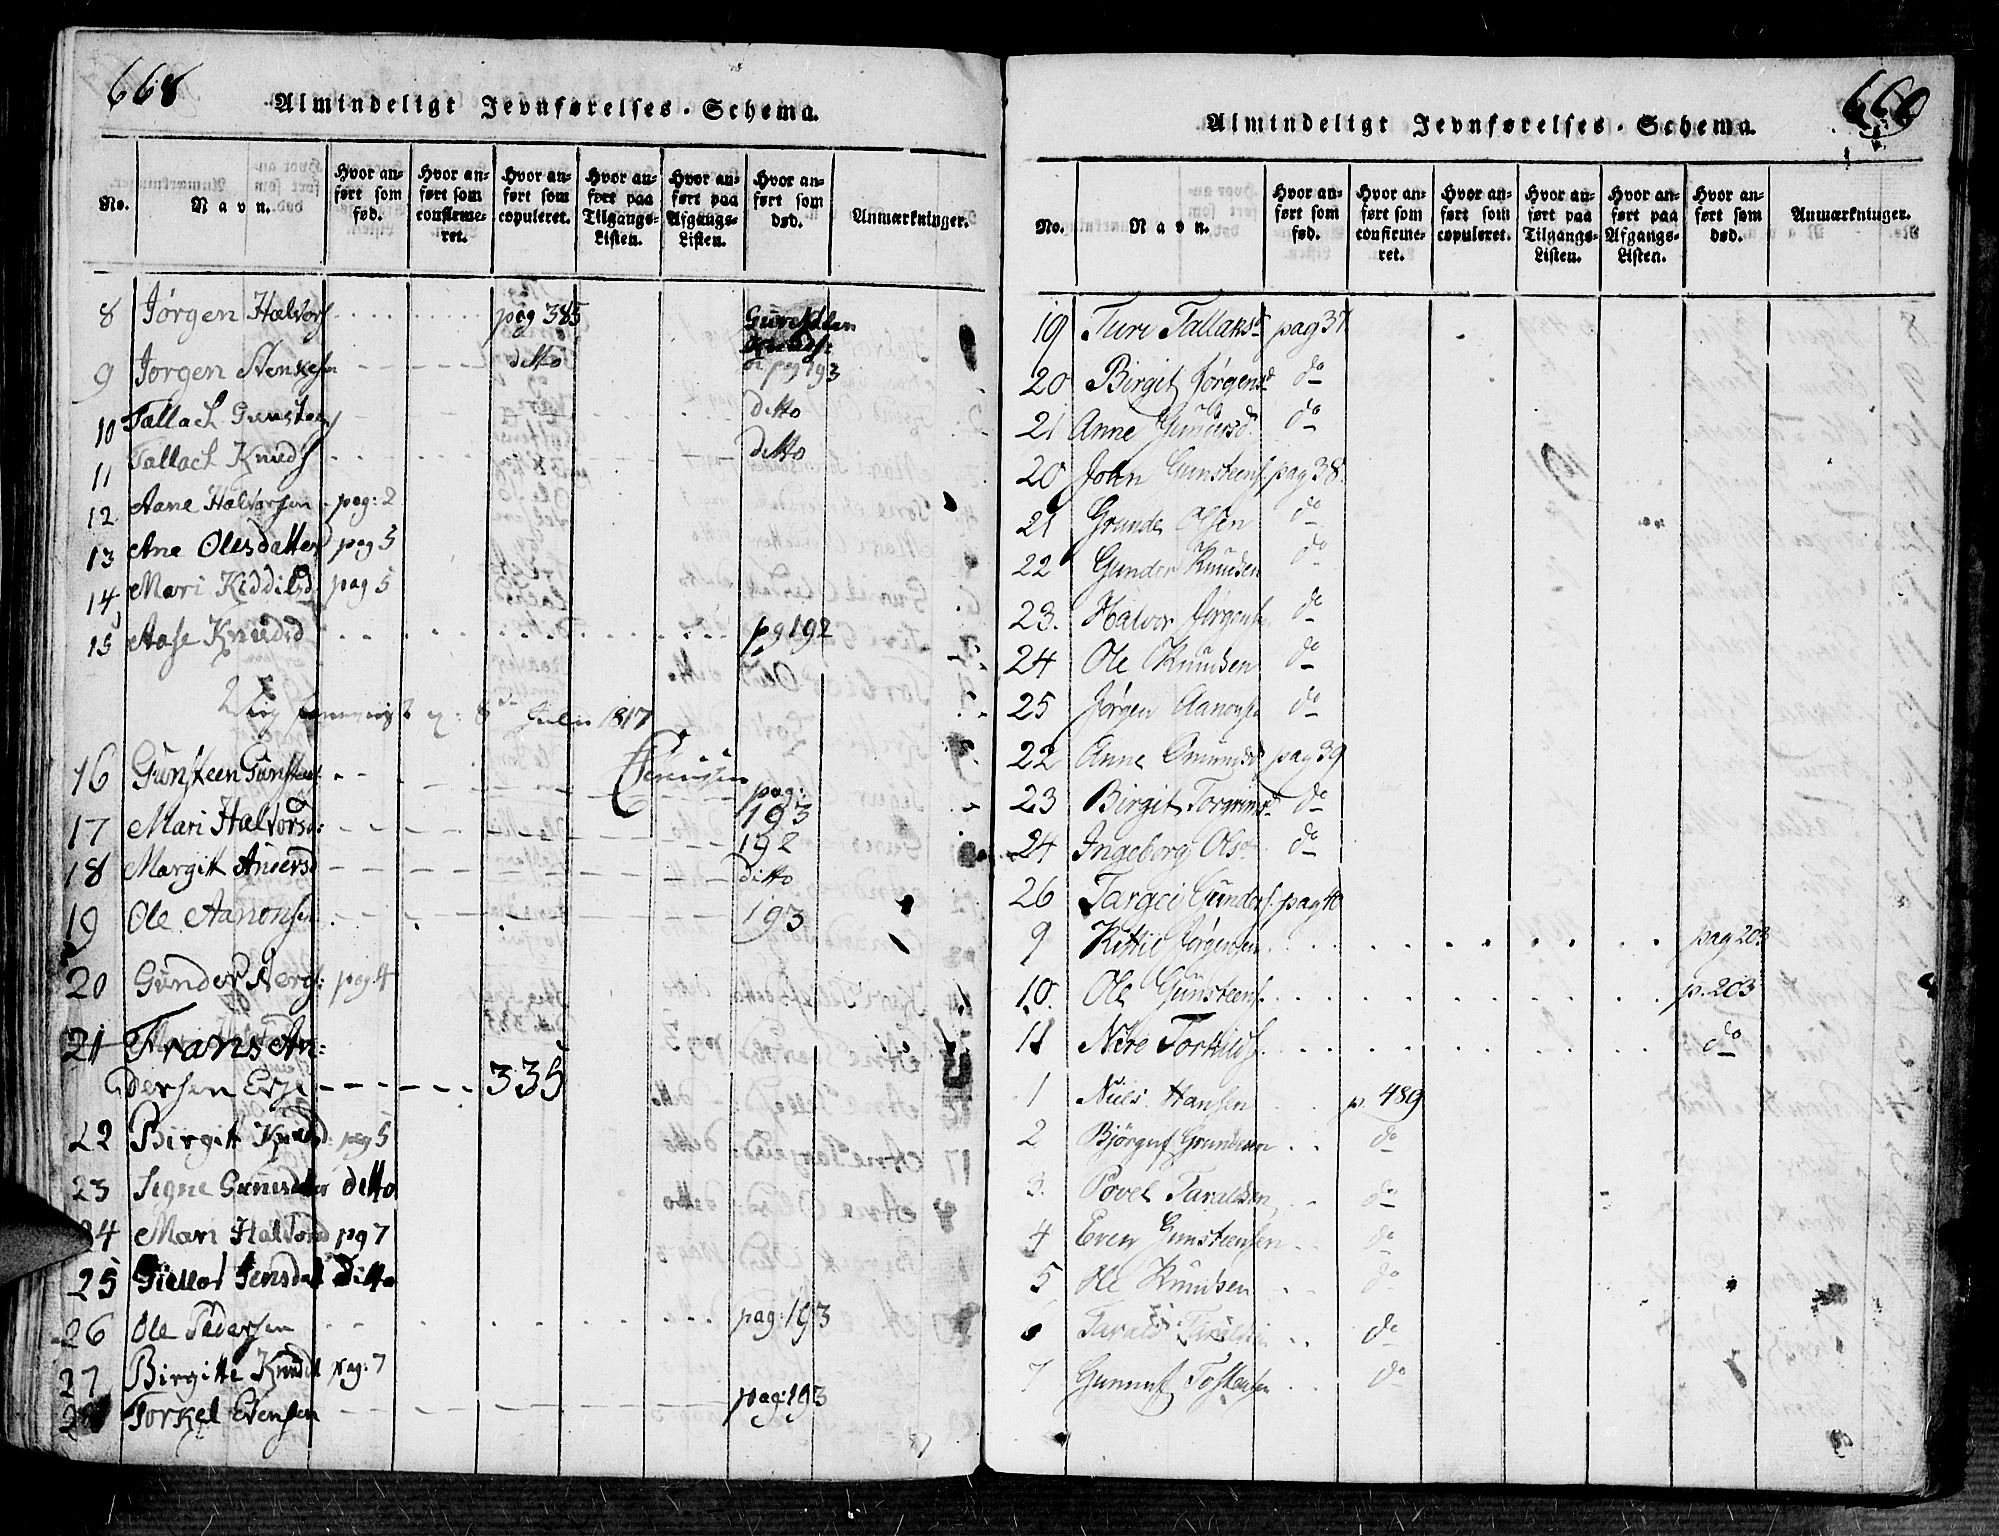 668
Almindeligt Jevnførelses-Schema.
No.
Navn.
Hvor anført som fød.
Hvor anført som confirmeret.
Hvor anført som copuleret.
Hvor anført paa Tilgangs-Listen.
Hvor anført paa Afgangs-Listen.
Hvor anført som død.
Anmærkninger.
8 Jørgen Halvors pag 385
9 Jørgen ditto pag 193
10 Tallach Gunsteens ditto
11 Tallach Knuds ditto
12 Aane Halvorsen pag: 2
13 Ane Olesdatter pag 5
14 Mari Kiddilsd pag 5
15 Aase Knudsd pg 192
8de Julii 1817
16 Gunsteen Gunsteens pag: 193
17 Mari Halvorsd: 192
18 Margit Andersd ditto
19 Ole Aanonsen 193
20 Gunder pag. 4
21 Frans An:
dersen 335
22 Birgit Knudsd: pag 5
23 Signe Gunsdatter ditto
24 Mari Halvorsd pg 7
25 Jensdat Ditto
26 Ole Pedersen pag: 193
27 Birgitte Knudsd pag: 7
28 Torkel Evensen pag: 193
Almindeligt Jevnførelses-Schema.
No.
Navn.
Hvor anført som fød.
Hvor anført som confirmeret.
Hvor anført som copuleret.
Hvor anført paa Tilgangs-Listen.
Hvor anført paa Afgangs-Listen.
Hvor anført som død.
Anmærkninger.
19 Turi Tallaksd pag 37
20 Birgit Jørgensd do
21 Anne Gundersd. do
20 John Gunsteens. pag 38.
21 Grunde Olsen do
22 Gunder Knudsen do
23. Halvor Jørgens do
24 Ole Knudsen do
25 Jørgen Aanons do
22 Anne Omundsd pag 39
23 Birgit Torgrimsd do
24 Ingeborg Olsd do
26 Targei Gunders. pag 40
9 Kittil Jørgensen pag 203
10. Ole Gunsteens. p. 203
11 Nere Torkilds. do
1 Niels Hansen p. 489
2 Bjørguf Grundesen do
3. Povel Taraldsen do
4 Even Gunsteensen do
5 Ole Knudsen do
6 Tarald Taraldsen do
7 Gunnuf Tostensen do